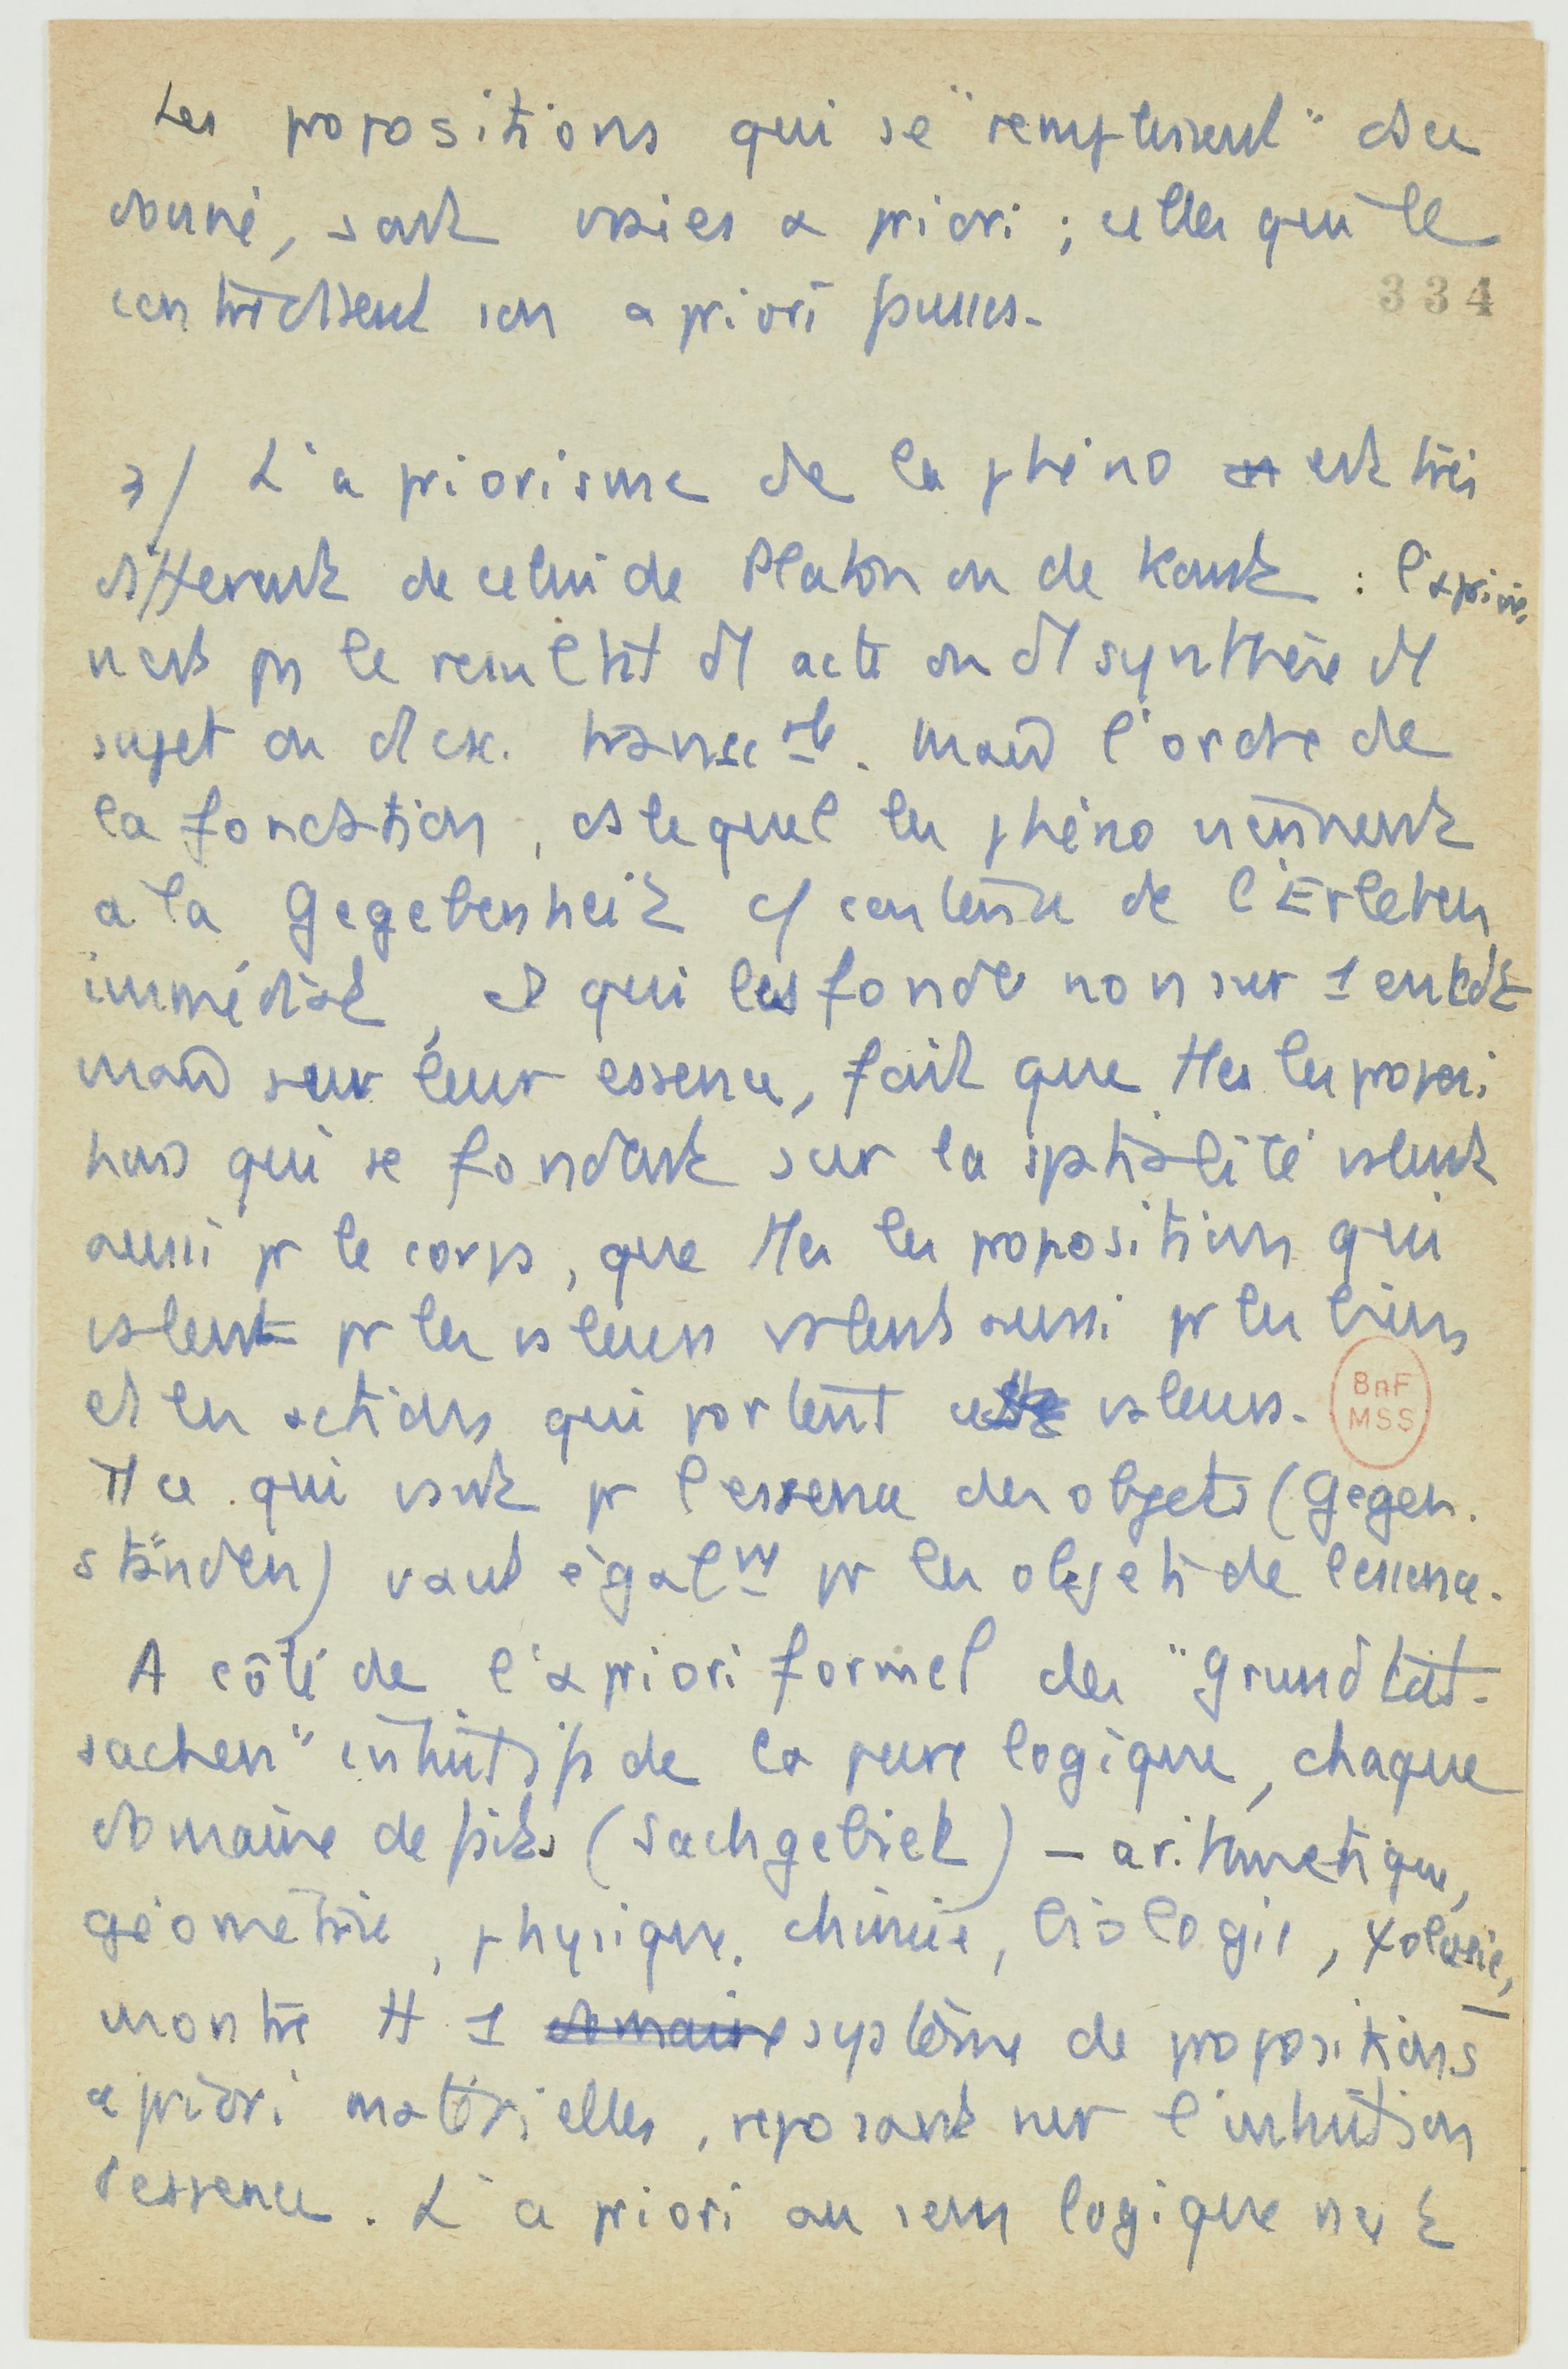 Les propositions qui se "remplissent" ds ce
donné, sont vraies a priori ; celles qui le
334
contredisent son a priori fausses.
3/ L'a priorisme de la phéno est très
différent de celui de Platon ou de Kant : l'a priori
n'est ps le résultat d'1 acte ou d'1 synthèse d'1
sujet ou d'1 csc. transc le. Mais l'ordre de
la fondation, ds lequel les phéno viennent
à la Gegebenheit c/ contenu de l'Erleben
immédiat, et qui les fonde non sur 1 entité
mais sur leur essence, fait que ttes les proposi
tions qui se fondent sur la spatialité valent
aussi pr le corps, que ttes les propositions qui
valent pr les valeurs valent aussi pr les biens
et les actions qui portent ces valeurs.
BnF
MSS
Tt ce qui vaut pr l'essence des objets (Gegen-
ständen) vaut égalmt pr les objets de l'essence.
A côté de l'a priori formel des "Grundtat-
sachen" intuitifs de la pure logique, chaque
domaine de faits (Sachgebiet) – aritmétique,
géométrie, physique, chimie, biologie, ψologie, –
montre tt 1 domaine système de propositions
a priori matérielles, reposant sur l'intuition
d'essence. L'a priori au sens logique n'est